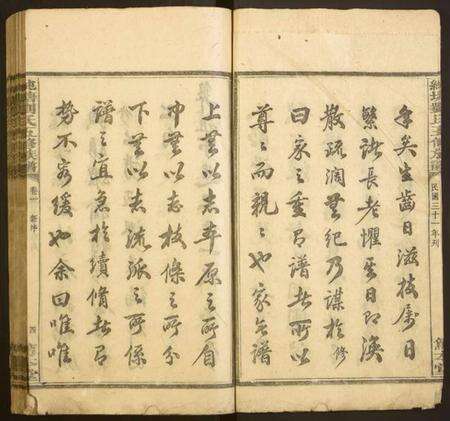 民國三十一年刊
年矣生齒日滋枝屬日
繁諸長老懼其日即渙
散疏濶無紀乃謀於修
曰家之重有譜者所以
尊〻而親〻也家無譜
上無以志本原之所自
中無以志枝條之所分
下無以志流派之所係
譜之宜急於續脩者有
勢不容緩也余曰唯唯
四